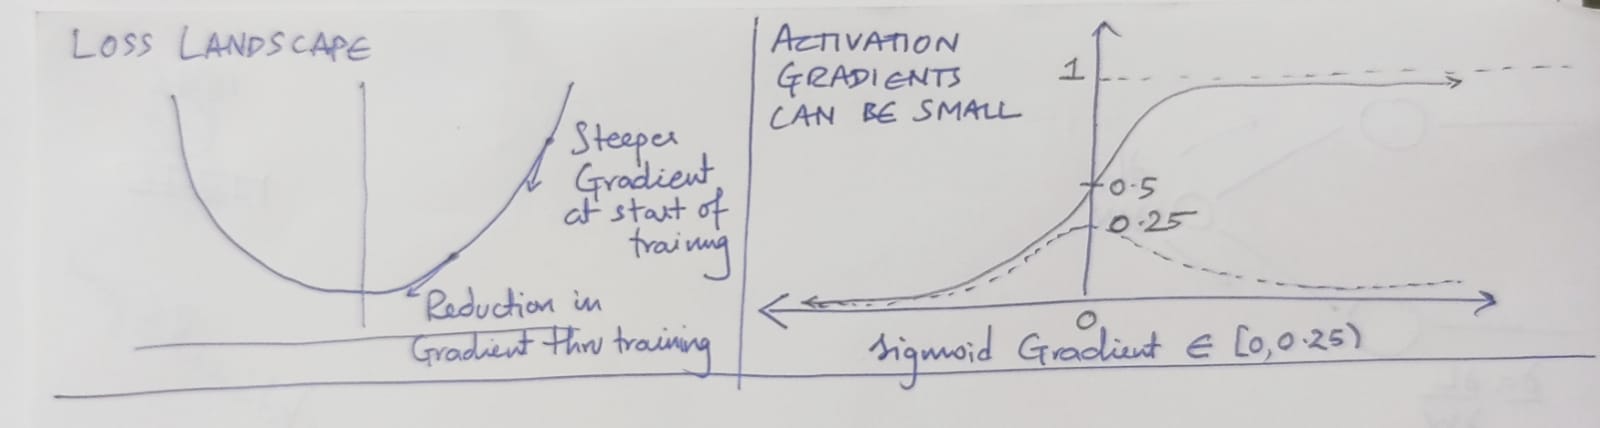 LOSS LANDSCAPE
Steeper
Gradient
at start of
training
Reduction in
Gradient thru training
ACTIVATION
GRADIENTS
CAN BE SMALL
1
0.5
0.25
0
sigmoid Gradient ∈ [0,0.25)